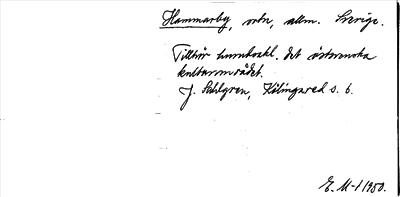 Hammarby, ortn, allm. Sverige.
Tillhör huvudsakl. det östsvenska
kulturområdet.
J. Sahlgren, Kölingared s. 6.
E. M-t 1950.